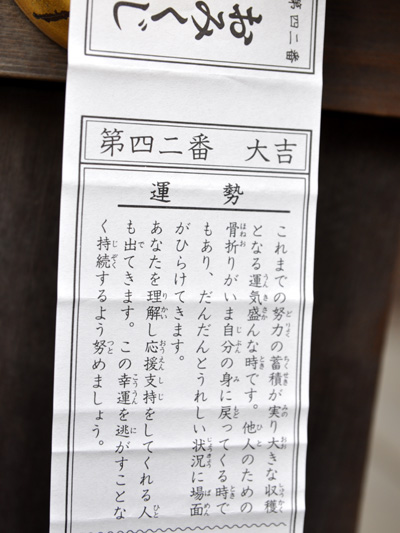 第四二番
おみくじ
第四二番 大吉
運勢
これまでの努力の蓄積が実り大きな収穫
となる運気盛んな時です。他人のための
骨折りがいま自分の身に戻ってくる時で
もあり、だんだんとうれしい状況に場面
がひらけてきます。
あなたを理解し応援支持をしてくれる人
も出てきます。この幸運を逃がすことな
く持続するよう努めましょう。